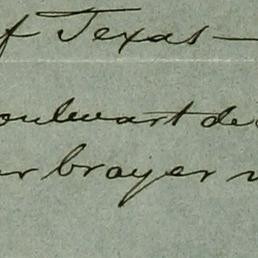 of Texas —
oulevart de
er brayer